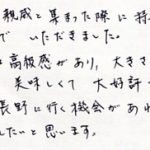 親戚と集まった際に持
でいただきました。
高級感があり、大きさ
美味しくて大好評
長野に行く機会があれ
したいと思います。